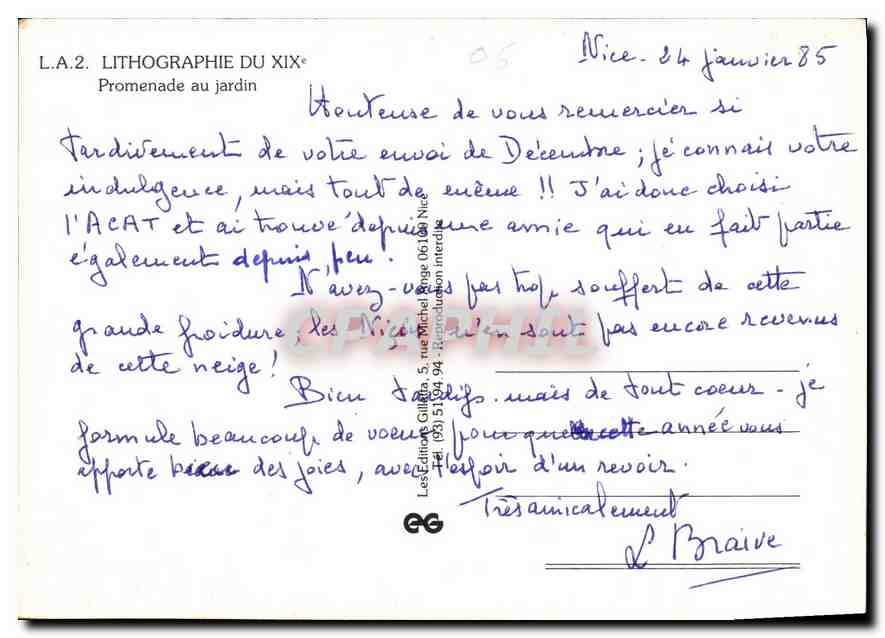 L.A.2. LITHOGRAPHIE DU XIXe
Promenade au jardin
05
Nice - 24 janvier 85
Honteuse de vous remercier si
tardivement de votre envoi de Décembre ; je connais votre
indulgence, mais tout de même !! J'ai donc choisi
l'ACAT et ai trouvé depuis une amie qui en fait partie
également depuis peu.
N'avez-vous pas trop souffert de cette
grande froidure ; les Niçois n'en sont pas encore revenus
de cette neige !
Bien tardifs - mais de tout coeur - je
formule beaucoup de voeux pour que cette année vous
apporte bien des joies, avec l'espoir d'un revoir.
Très amicalement
L Braive
Les Editions Gilletta, 5, rue Michel Ange 06100 Nice
Tél. (93) 51.94.94 - Reproduction interdite
eG
CPAPHIL